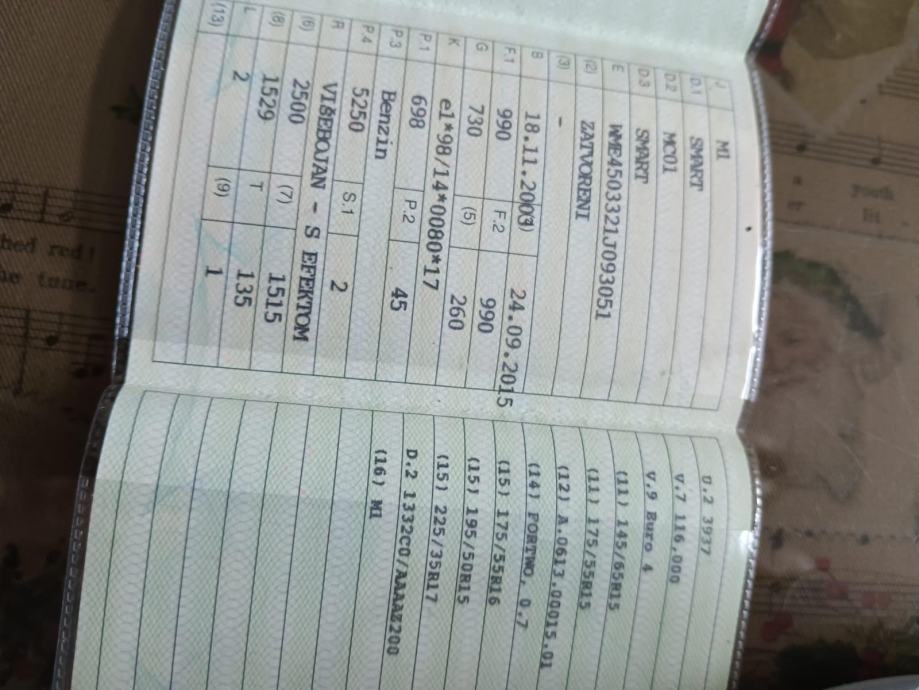 J M1
D.1 SMART
D.2 MC01
D.3 SMART
E WME4503321J093051
(2) ZATVORENI
(3) -
B 18.11.2003 24.09.2015
F.1 990 F.2 990
G 730 (5) 260
K e1*98/14*0080*17
P.1 698 P.2 45
P.3 Benzin
P.4 5250 S.1 2
R VIŠEBOJAN - S EFEKTOM
(6) 2500 (7) 1515
(8) 1529 T 135
L 2 (9) 1
(13)
U.2 3937
V.7 116,000
V.9 Euro 4
(11) 145/65R15
(11) 175/55R15
(12) A.0613.00015.01
(14) FORTWO, 0.7
(15) 175/55R16
(15) 195/50R15
(15) 225/35R17
D.2 1332C0/AAAAZ200
(16) M1
youth
lit
hed red!
tune.